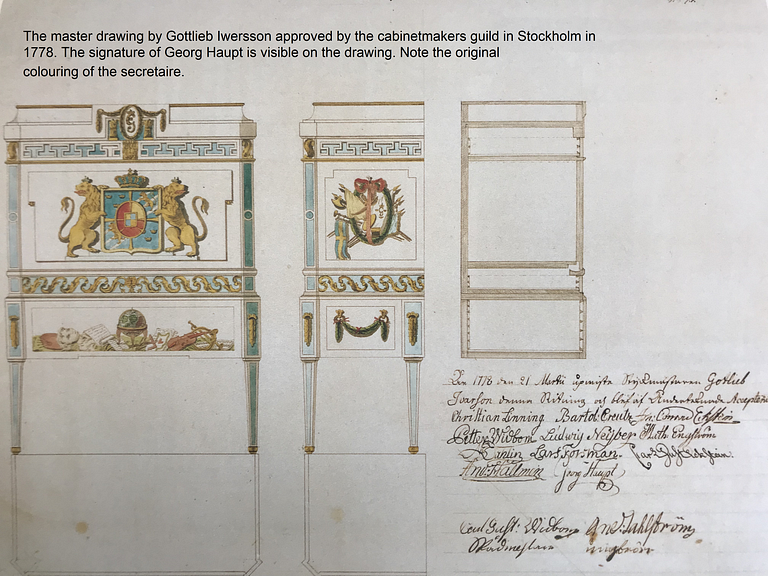 The master drawing by Gottlieb Iwersson approved by the cabinetmakers guild in Stockholm in
1778. The signature of Georg Haupt is visible on the drawing. Note the original
colouring of the secretaire.
Den 1778 den 21 Martii Gotlieb
Ivarson denna Ritning och blef af
Christian Linning Bartol Creutz Conrad Eckstein
Petter Widbom Ludwig Neijber Math Engström
Lars Forsman
Hallman Georg Haupt
Carl Gust: Widbom And: Dahlström